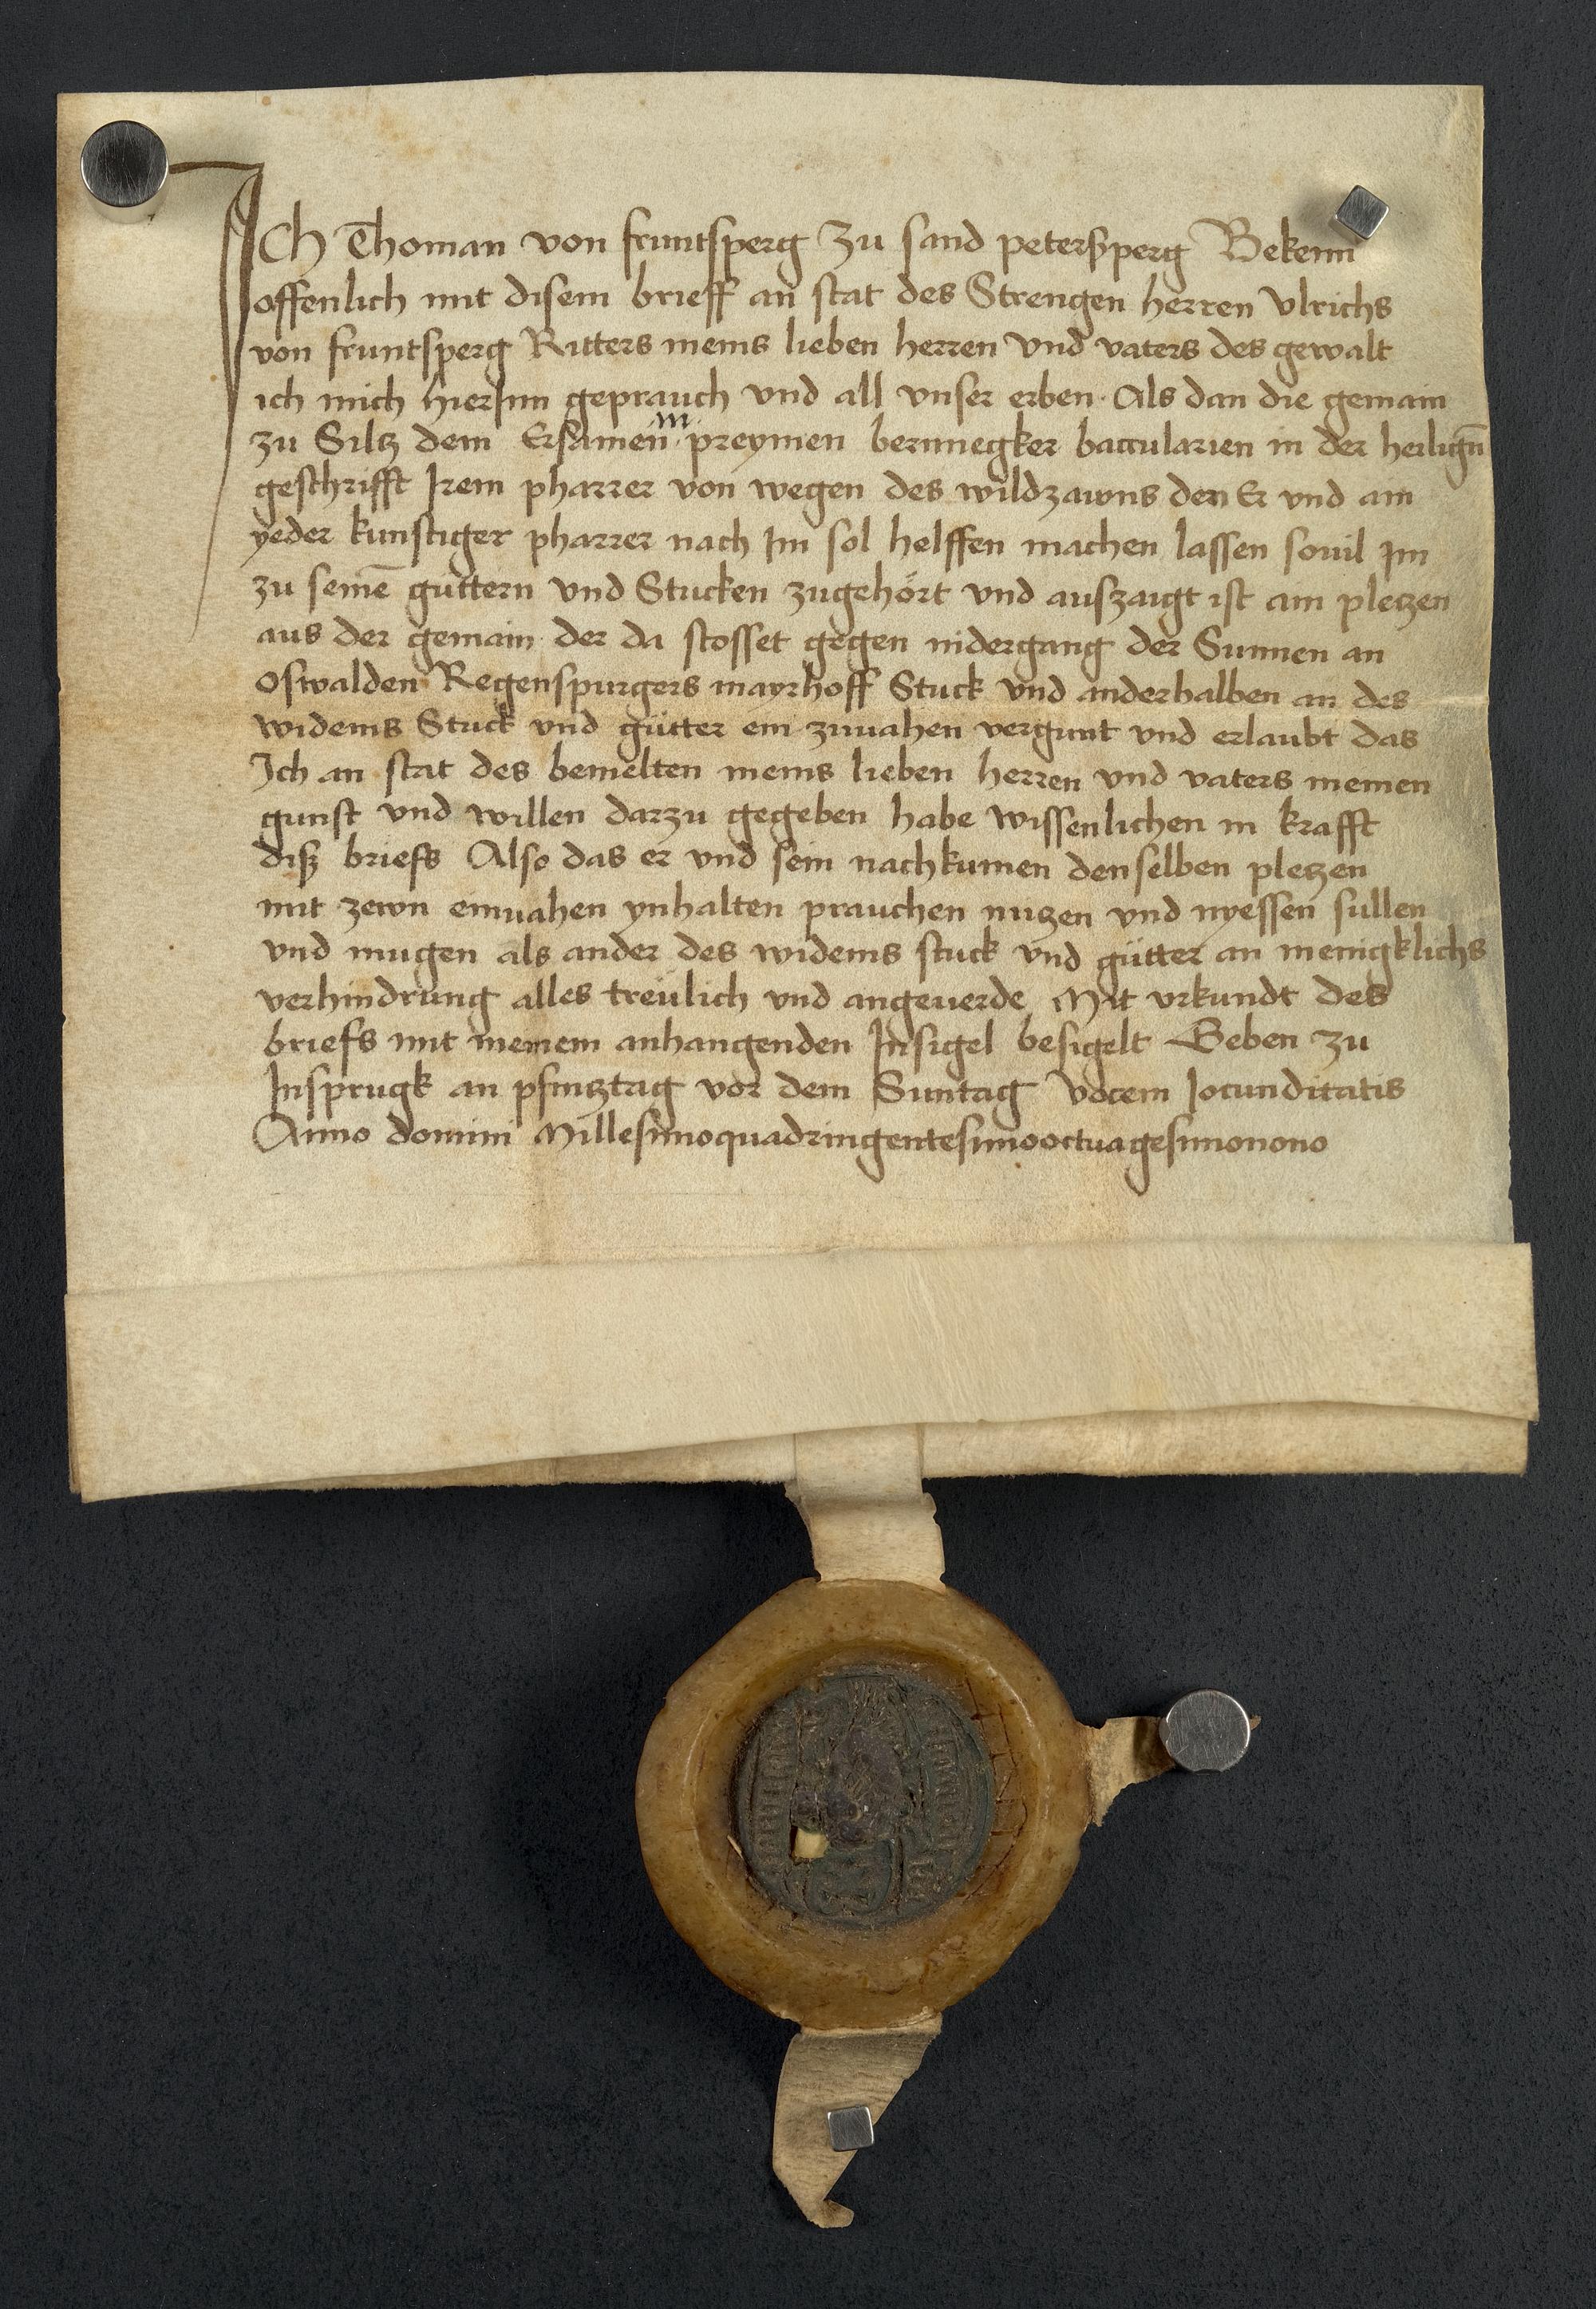 ICh Thoman von fruntsperg zu sand petersperg Bekenn
offenlich mit disem brieff an stat des Strengen herren Vlrichs
von fruntsperg Ritters meins lieben herren vnd vaters des gewalt
ich mich hierInn geprauch vnd all vnser erben · Als dan die gemain
zu Siltz dem Ersamen m preymen bernnegker baccularien in der heilign̄
geschrifft Irem pharrer von wegen des wildzawns den Er vnd ain
yeder kunftiger pharrer nach Im sol helffen machen lassen souil Im
zu seinē güttern vnd Stucken zugehört vnd auszaigt ist ain pletzen
aus der gemain der da stosset gegen nidergang der Sunnen an
Oswalden Regenspurgers mayrhoff Stuck vnd anderhalben an des
widems Stuck vnd gütter ein zuuahen vergunt vnd erlaubt das
Ich an stat des bemelten meins lieben herren vnd vaters meinen
gunst vnd willen darzu gegeben habe wissenlichen in krafft
diß briefs Also das er vnd sein nachkumen denselben pletzen
mit zewn einuahen ynhalten prauchen nutzen vnd nyessen sullen
vnd mugen als ander des widems stuck vnd gütter an menigklichs
verhindrung alles treülich vnd angeuerde Mit vrkundt des
briefs mit meinem anhangenden Insigel besigelt Geben zu
Insprugk an pfintztag vor dem Suntag Vocem Iocunditatis
Anno domini Millesimoquadringentesimooctuagesimonono